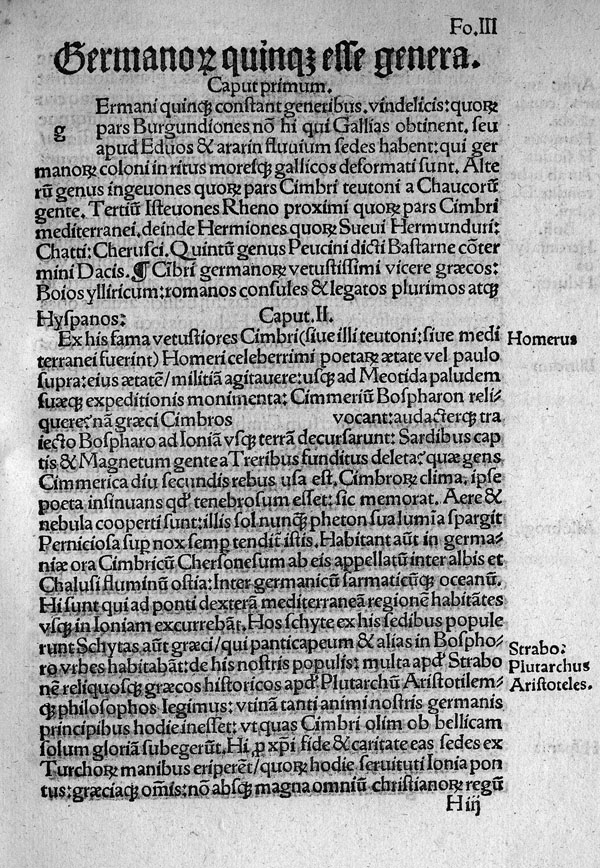 Fo.III
Germanoꝝ quinqꝫ esse genera.
Caput primum.
g Ermani quinqꝫ constant generibus. vindelicis: quoꝝ
pars Burgundiones nō hi qui Gallias obtinent. seu
apud Eduos & ararin fluuium sedes habent: qui ger
manoꝝ coloni in ritus moresqꝫ gallicos deformati sunt. Alte
rū genus ingeuones quoꝝ pars Cimbri teutoni a Chaucorū
gente. Tertiū Isteuones Rheno proximi quoꝝ pars Cimbri
mediterranei. deinde Hermiones quoꝝ Sueui Hermunduri:
Chatti: Cherusci. Quintū genus Peucini dicti Bastarne cōter
mini Dacis. ¶ Cībri germanoꝝ vetustissimi vicere græcos:
Boios ylliricum: romanos consules & legatos plurimos atqꝫ
Hyspanos: Caput. II.
Ex his fama vetustiores Cimbri (siue illi teutoni: siue medi
terranei fuerint) Homeri celeberrimi poetaꝝ ætate vel paulo
Homerus
supra: eius ætatē/ militiā agitauere: usqꝫ ad Meotida paludem
suæqꝫ expeditionis monimenta: Cimmeriū Bospharon reli⸗
quere: nā græci Cimbros vocant: audacterqꝫ tra
iecto Bospharo ad Ioniā vsqꝫ terrā decursarunt: Sardibus cap
tis & Magnetum gente a Treribus funditus deleta: quæ gens
Cimmerica diu secundis rebus usa est. Cimbroꝝ clima. ipse
poeta insinuans qd' tenebrosum esset: sic memorat. Aere &
nebula cooperti sunt: illis sol nunqꝫ pheton sua lumīa spargit
Perniciosa sup nox semp tendit̄ istis. Habitant aūt in germa⸗
niæ ora Cimbricū Chersonesum ab eis appellatū inter albis et
Chalusi fluminū ostia: Inter germanicū sarmaticūqꝫ oceanū.
Hi sunt qui ad ponti dexterā mediterraneā regionē habitātes
vsqꝫ in Ioniam excurrebāt. Hos schyte ex his sedibus popule
runt Schytas aūt græci/ qui panticapeum & alias in Bospho⸗
ro vrbes habitabāt: de his nostris populis: multa apd' Strabo
Strabo:
nē reliquosqꝫ græcos historicos apd' Plutarchū Aristotilem⸗
Plutarchus
qꝫ philosophos legimus: vtinā tanti animi nostris germanis
Aristoteles.
principibus hodie inesset: vt quas Cimbri olim ob bellicam
solum gloriā subegerūt. Hi ꝓ xp̄i fide & caritate eas sedes ex
Turchoꝝ manibus eriperēt/ quoꝝ hodie seruituti Ionia pon
tus: græciaqꝫ om̄is: nō absqꝫ magna omniū christianoꝝ regū
H iij